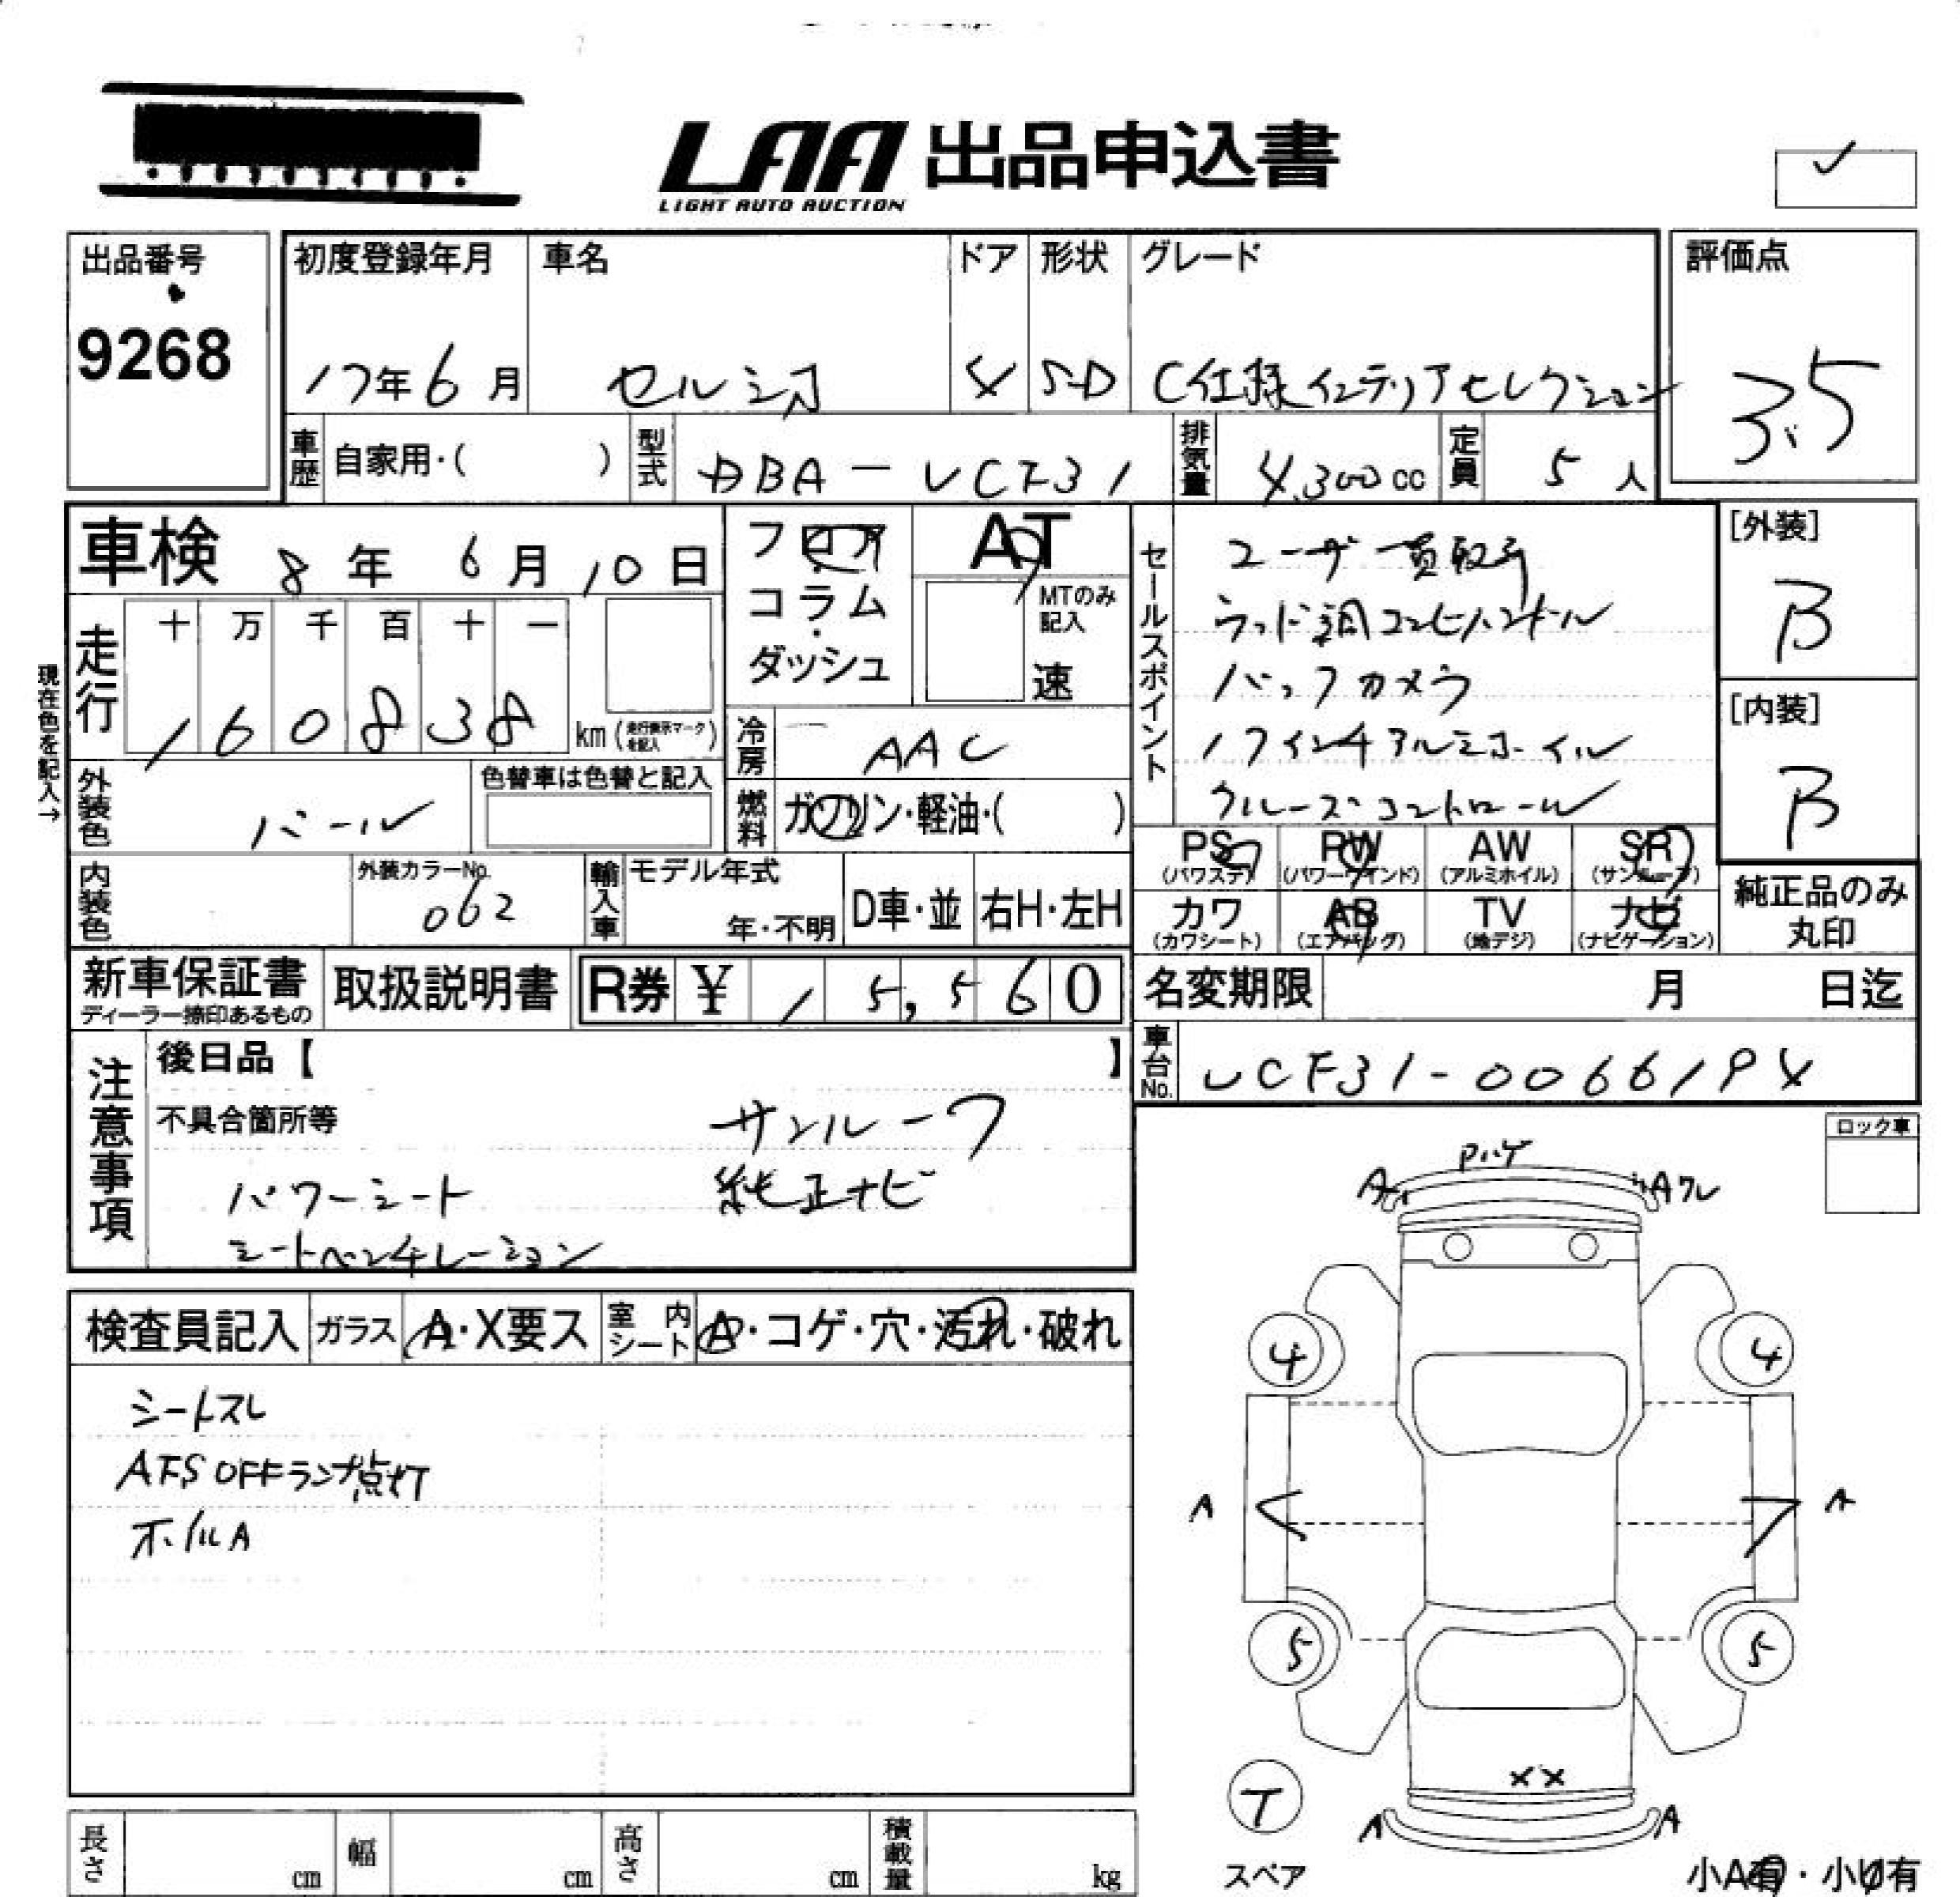 LAA 出品申込書
LIGHT AUTO AUCTION
✓
出品番号
9268
初度登録年月
17年6月
車名
セルシオ
ドア
4
形状
S-D
グレード
C仕様インテリアセレクション
評価点
3.5
車歴
自家用・( )
型式
DBA-UCF31
排気量
4,300cc
定員
5人
車検 8年 6月 10日
フロア・コラム・ダッシュ
AT
MTのみ記入
速
セールスポイント
ユーザー買取車
ウッド調コンビハンドル
バックカメラ
17インチアルミホイル
クルーズコントロール
[外装]
B
[内装]
B
現在色を記入→
走行
十 万 千 百 十 一
160838
km(走行表示マークを記入)
冷房
AAC
外装色
パール
色替車は色替と記入
燃料
ガソリン・軽油・( )
PS (パワステ)
PW (パワーウインド)
AW (アルミホイル)
SR (サンルーフ)
カワ (カワシート)
AB (エアバッグ)
TV (地デジ)
ナビ (ナビゲーション)
純正品のみ丸印
内装色
外装カラーNo.
062
輸入車
モデル年式
年・不明
D車・並
右H・左H
新車保証書
ディーラー捺印あるもの
取扱説明書
R券 ¥ 15,560
名変期限 月 日迄
車台No.
UCF31-0066194
注意事項
後日品【 】
不具合箇所等
サンルーフ
パワーシート
純正ナビ
シートベンチレーション
ロック車
検査員記入
ガラス
A・X要ス
室内シート
A・コゲ・穴・汚れ・破れ
シートスレ
AFS OFFランプ点灯
ホイルA
Pハゲ
A
Aワレ
4
4
A
A
5
5
XX
T
スペア
A
A
小A有・小U有
長さ cm
幅 cm
高さ cm
積載量 kg